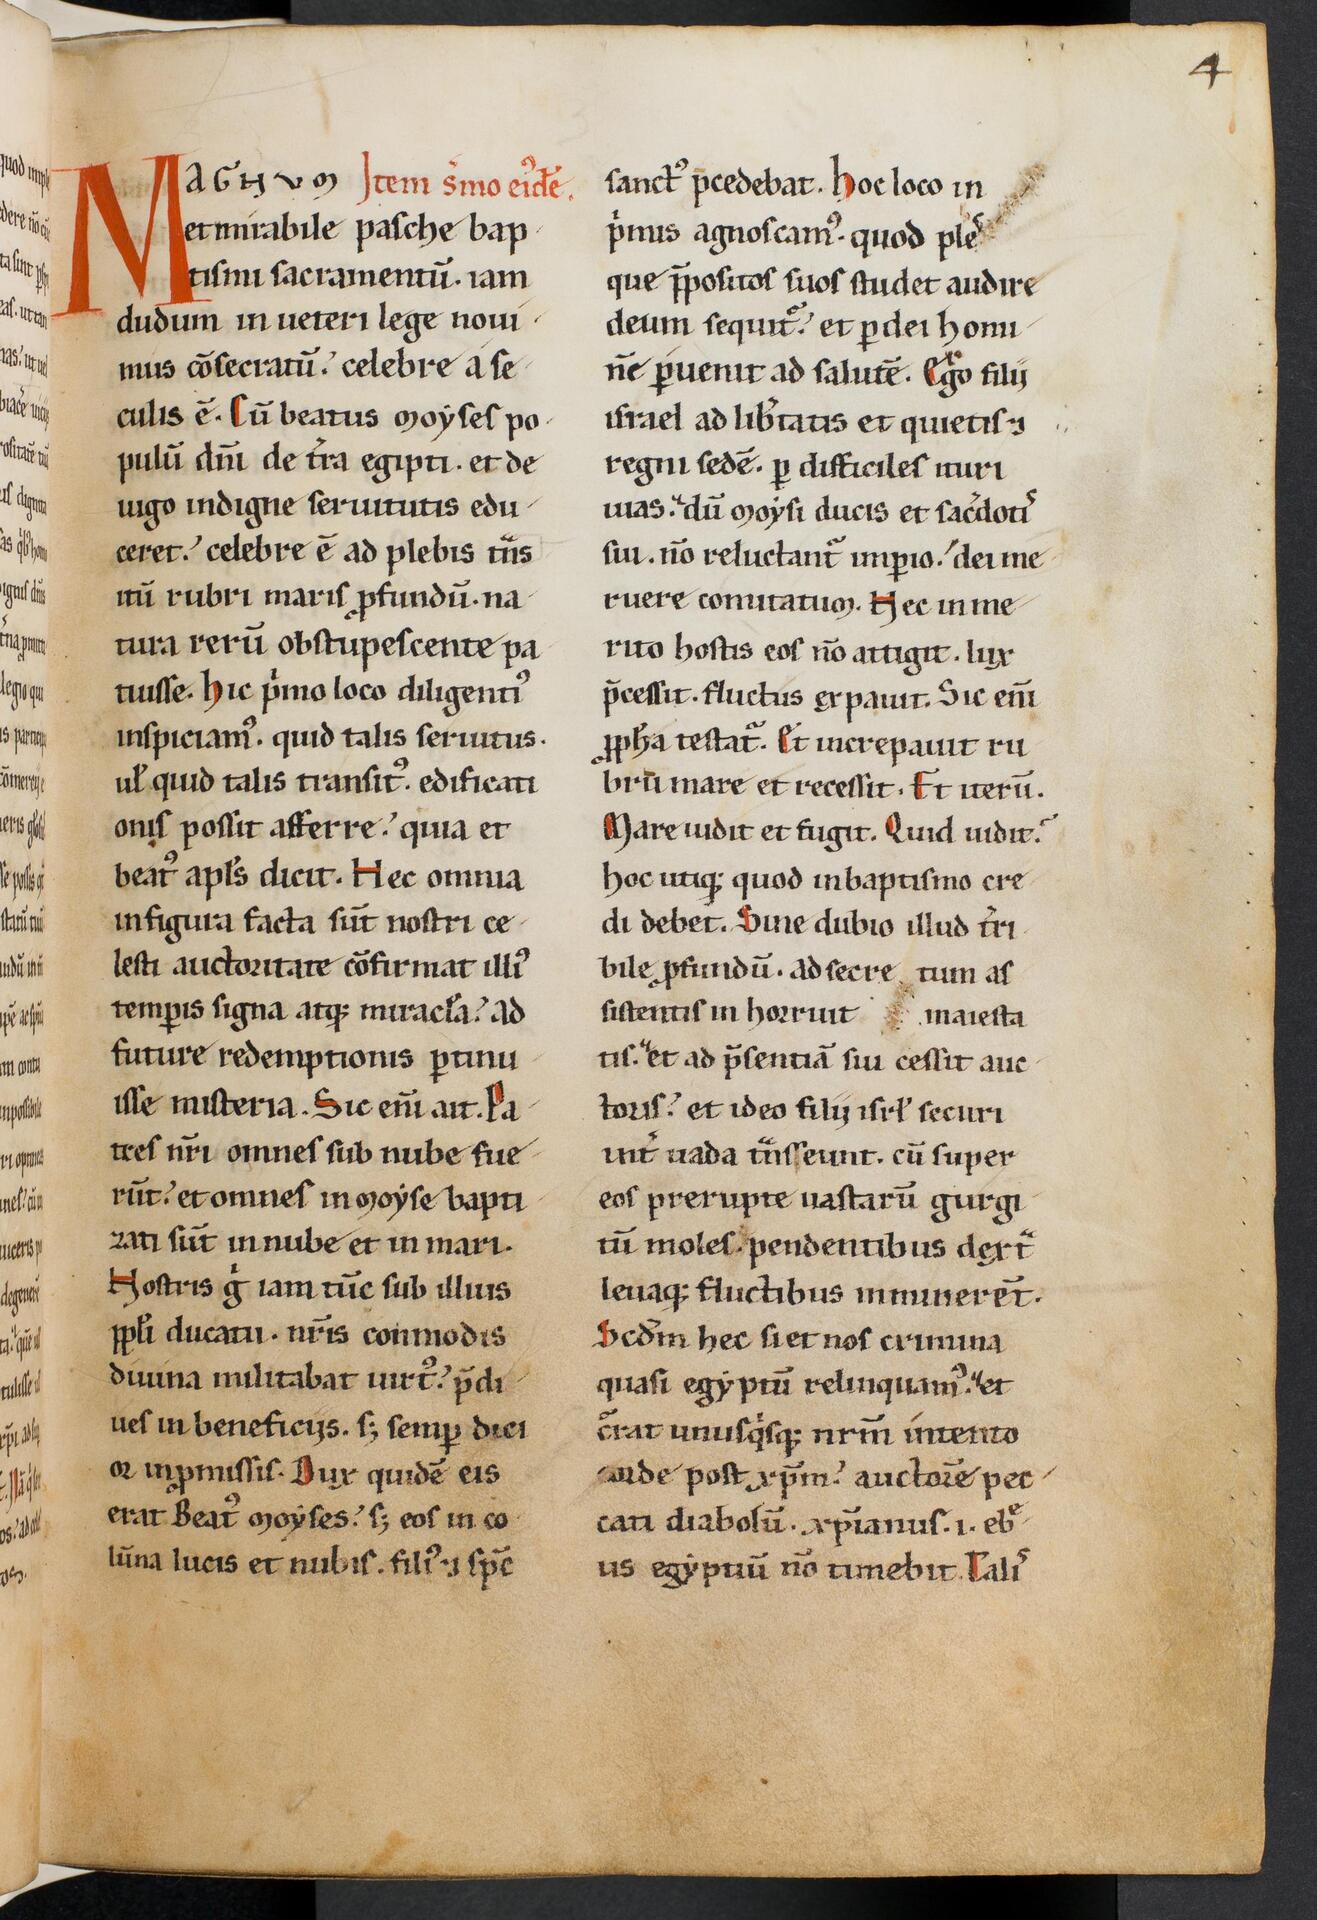 4
MAGNUM Item s̄mo eiꝰdē.
et mirabile pasche bap
tismi sacramentū. iam
dudum in ueteri lege noui
mus cōsecratū. celebre a se
culis ē. Cū beatus moẏses po
pulū dn̄i de t̄ra egipti. et de
iugo indigne seruitutis edu
ceret. celebre ē ad plebis tn̄s
itū rubri maris ꝓfundū. na
tura rerū obstupescente pa
tuisse. hic p̍mo loco diligentiꝰ
inspiciamꝰ. quid talis seruitus.
ul̄ quid talis transitꝰ. edificati
onis possit afferre. quia et
beatꝰ apl̄s dicit. Hec omnia
in figura facta sūt nostri ce
lesti auctoritate cōfirmat illiꝰ
temꝑis signa atqꝫ miracl̄a. ad
future redemptionis ꝑtinu
isse misteria. Sic eni̅ ait. Pa
tres nr̄i omnes sub nube fue
rūt. et omnes in moẏse bapti
zati sūt in nube et in mari.
Nostris g̍ iam tūc sub illius
ppl̄i ducatu. nr̄is conmodis
diuina militabat uirtꝰ. p̄di
ues in beneficijs. sꝫ semꝑ dici
or in ꝓmissis. Dux quidē eis
erat Beatꝰ moẏses. sꝫ eos in co
lūna lucis et nubis. filiꝰ ⁊ sp̄c
sanctꝰ p̄cedebat. hoc loco in
p̍mus agnoscamꝰ. quod ple
que p̄positos suos studet audire
deum sequit᷑. et ꝑ dei homi
nē ꝑuenit ad salutē. Ego filij
israel ad lib̄tatis et quietis ⁊
regni sedē. ꝑ difficiles ituri
uias. dū moẏsi ducis et sac̄doti᷒
sui. nō reluctant᷑ imꝑio. dei me
ruere comitatum. Hec in me
rito hostis eos nō attigit. lux
p̄cessit. fluctus expauit. Sic eni̅
ꝓph̄a testat᷑. Et increpauit ru
brū mare et recessit. Et iterū.
Mare uidit et fugit. Quid uidit.
hoc utiqꝫ quod in baptismo cre
di debet. Sine dubio illud t̄ri
bile ꝓfundū. ad secre tum as
sistentis in horruit maiesta
tis. et ad p̄sentiā sui cessit auc
toris. et ideo filij isrl̄ securi
int̄ uada tn̄sseunt. cū super
eos prerupte uastarū gurgi
tū moles. pendentibus dextᷓ
leuaqꝫ fluctibus inminerēt.
Scdm̄ hec si et nos crimina
quasi egẏptū relinquamꝰ. et
c̄rat unusq̍sqꝫ nrm̄ intento
corde post xp̄m. auctorē pec
cati diabolū. xp̄ianus. i. ebͤ
us egẏptiū nō timebit. Tali᷒